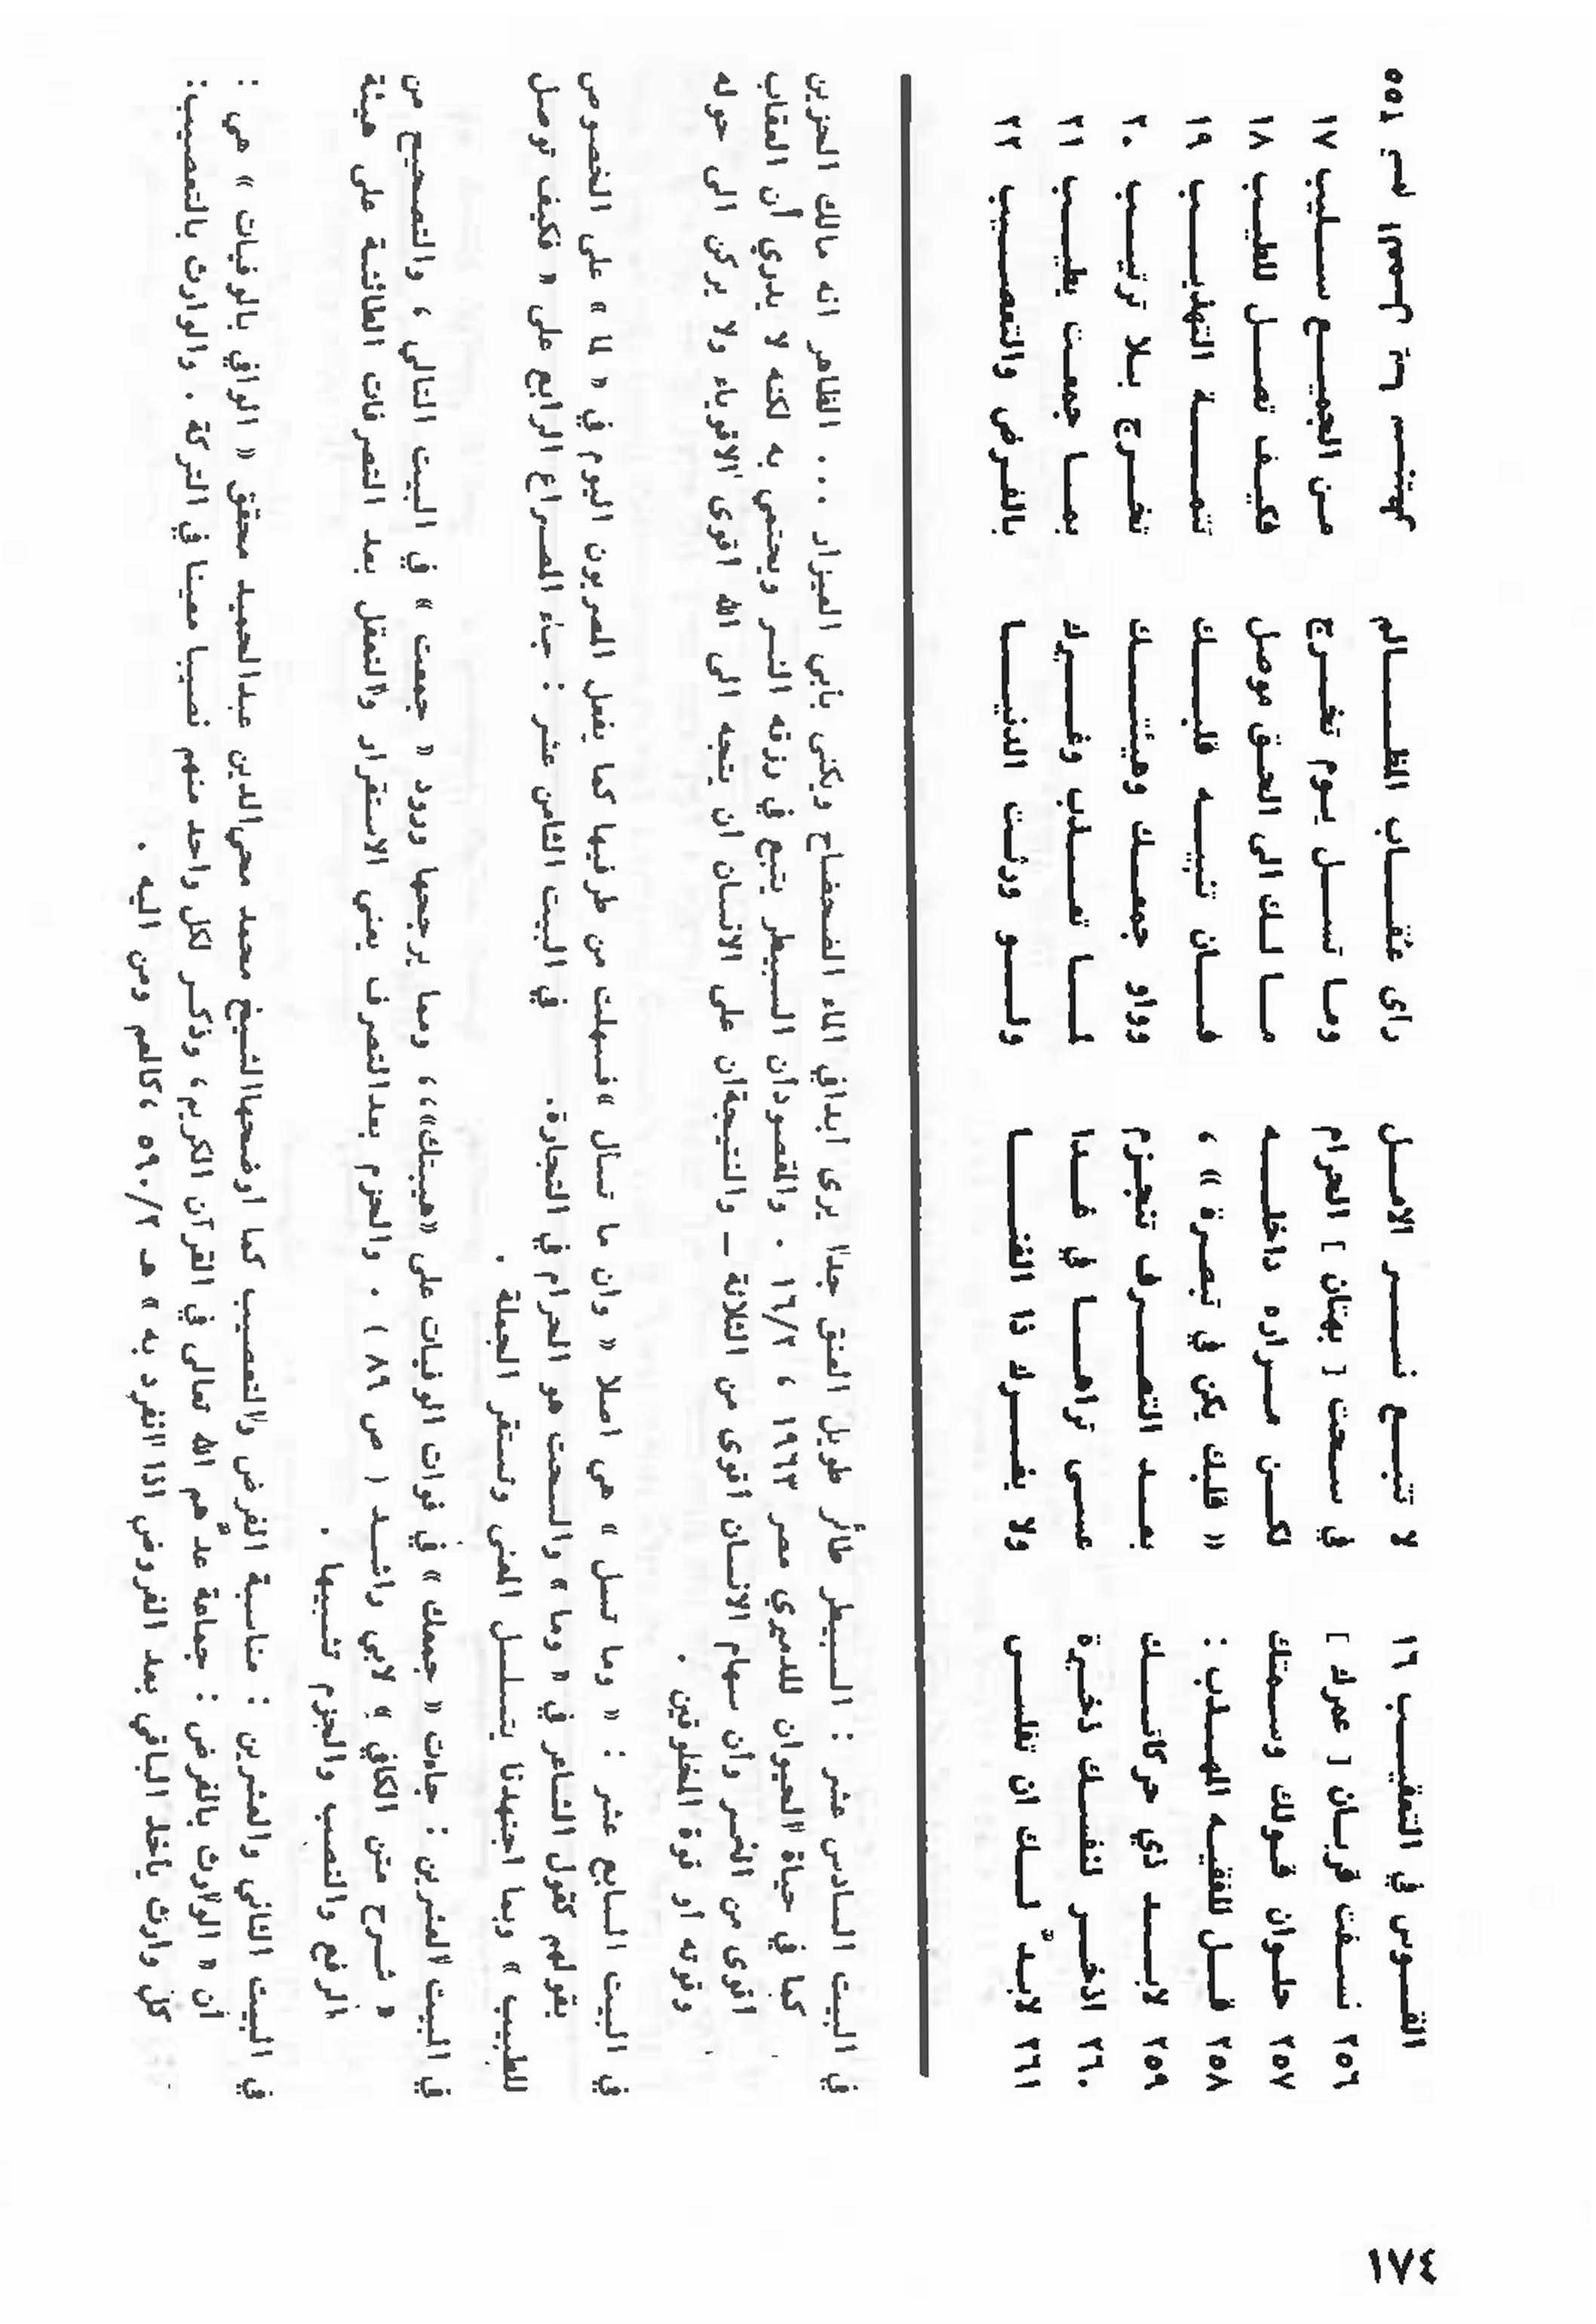 ١٧٤
القــوس في التعقيــب ١٦ لا تتبــع نســر الامــل راى عقــاب المظــالم
٢٥٦ نســفت قربــان [ عمرك ] في سـحت [ بهتان ] الحرام ومـا تســل يــوم تخــرج مــن الجميــع ســليب ١٧
٢٥٧ حلــوان قــولك وســمتك لكــن مــراره داخلــه مــا لــك الى الحــق موصل فكيــف تصــل للطيــب ١٨
٢٥٨ قــل للفقيــه المهــذب : « قلبك يكن في تبصرة » ، فــان تنبيــه قلبــك تتمــة التهذيــب ١٩
٢٥٩ لابــد ذي حركاتــك بعــد التصــرف تنجــزم وواو جمعــك وهيئتــك تخــرج بــلا ترتيــب ٢٠
٢٦٠ اذخــر لنفســك ذخــيرة عســى تراهــا في غــدا لمــا تعــذب وغــيرك بمــا جمعــت يطيــب ٢١
٢٦١ لابــدّ لــك ان تفلــس ولا يغــرك ذا الغنــا ولــو ورثــت الدنيــا بالفــرض والتعصــيب ٢٢
في البيت السادس عشر : السبيطر طائر طويل العنق جدا يرى ابدا في الماء الضحضاح ويكنى بأبي العيزار ... الظاهر انه مالك الحزين
كما في حياة الحيوان للدميري مصر ١٩٦٣ ، ١٦/٢ . والمقصود أن السبيطر يتبع في رزقه النسر ويحتمي به لكنه لا يدري أن العقاب
اقوى من النسر وأن سهام الانسان أقوى من الثلاثة ــ والنتيجة ان على الانسان ان يتجه الى الله اقوى الاقوياء ولا يركن الى حوله
وقوته او قوة المخلوقين .
في البيت السابع عشر : « وما تسل » هي اصلا « وان ما تسأل » فسهلت من طرفيها كما يفعل المصريون اليوم في « لما » على الخصوص
بقولهم كقول الشاعر في « وما » والسحت هو الحرام في التجارة. في البيت الثامن عشر : جاء المصراع الرابع على « فكيف توصل
للطبيب » وبما اجتهدنا يتسلسل المعنى وتستقر الجملة .
في البيت العشرين : جاءت « جمعك » في فوات الوفيات على «هيبتك» ، ، ومما يرجحها ورود « جمعت » في البيت التالي ، والتصحيح من
« شرح متن الكافي » لابي راشد ( ص ٨٩ ) . والحزم بعد التصرف يعني الاستقرار والتعقل بعد التصرفات الطائشة على هيئة
الرفع والنصب والجزم تشبيها .
في البيت الثاني والعشرين : مناسبة الفرض والتعصيب كما اوضحها الشيخ محمد محي الدين عبدالحميد محقق « الوافي بالوفيات » هي :
أن « الوارث بالفرض : جماعة عدّهم الله تعالى في القرآن الكريم ، وذكر لكل واحد منهم نصيبا معينا في التركة . والوارث بالتعصيب:
كل وارث يأخذ الباقي بعد الفروض اذا انفرد به » هـ ٥٩٠/٢ ، كالعم ومن اليه .